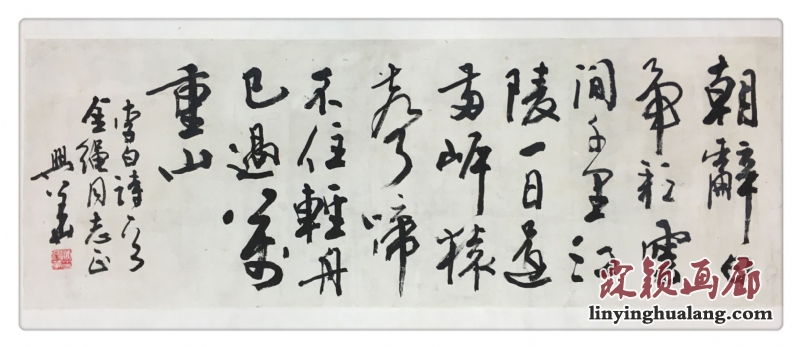 朝辭
帝彩雲
間千里江
陵一日還
兩岸猿
聲啼
不住輕舟
已過萬
重山
李白詩一首
同志正
霖颖画廊
linyinghualang.com